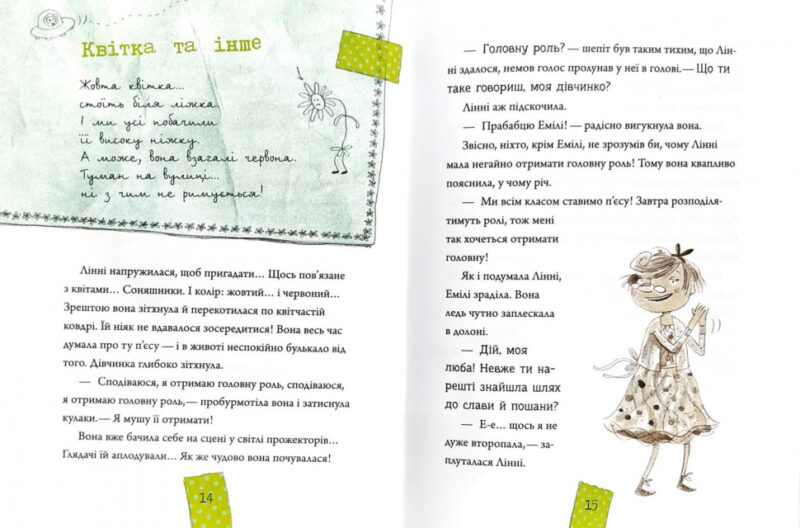 Квітка та інше
Жовта квітка...
стоїть біля ліжка.
І ми усі побачили
її високу ніжку.
А може, вона взагалі червона.
Туман на вулиці...
ні з чим не римується!
Лінні напружилася, щоб пригадати… Щось пов’язане
з квітами… Соняшники. І колір: жовтий…і червоний…
Зрештою вона зітхнула й перекотилася по квітчастій
ковдрі. Їй ніяк не вдавалося зосередитися! Вона весь час
думала про ту п’єсу — і в животі неспокійно булькало від
того. Дівчинка глибоко зітхнула.
— Сподіваюся, я отримаю головну роль, сподіваюся,
я отримаю головну роль,— пробурмотіла вона і затиснула
кулаки.— Я мушу її отримати!
Вона вже бачила себе на сцені у світлі прожекторів…
Глядачі їй аплодували… Як же чудово вона почувалася!
14
— Головну роль? — шепіт був таким тихим, що Лін-
ні здалося, немов голос пролунав у неї в голові.— Що ти
таке говориш, моя дівчинко?
Лінні аж підскочила.
— Прабабцю Емілі! — радісно вигукнула вона.
Звісно, ніхто, крім Емілі, не зрозумів би, чому Лінні
мала негайно отримати головну роль! Тому вона квапливо
пояснила, у чому річ.
— Ми всім класом ставимо п’єсу! Завтра розподіля-
тимуть ролі, тож мені
так хочеться отримати
головну!
Як і подумала Лінні,
Емілі зраділа. Вона
ледь чутно заплескала
в долоні.
— Дій, моя
люба! Невже ти на-
решті знайшла шлях
до слави й пошани?
— Е-е… щось я не
дуже второпала,— за-
плуталася Лінні.
15